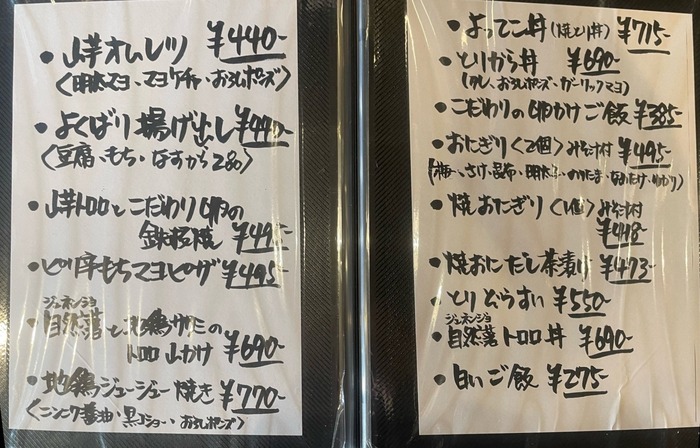 • 山芋オムレツ ¥440-
〈明太マヨ、マヨケチャ、おろしポンズ〉
• よくばり揚げ出し ¥440-
〈豆腐・もち・なすから2品〉
• 山芋トロロとこだわり卵の
鉄板焼 ¥495-
• ピリ辛もちマヨピザ ¥495-
ジネンジョ
• 自然薯と地鶏ササミの
トロロ山かけ ¥690-
• 地鶏ジュージュー焼き ¥770-
〈ニンニク醤油・黒コショー・おろしポンズ〉
• よってこ丼(焼とり丼) ¥715-
• とりから丼 ¥690-
(おろしポンズ・ガーリックマヨ)
• こだわりの卵かけご飯 ¥385-
• おにぎり〈2個〉みそ汁付 ¥495-
(梅・さけ・昆布・明太子・のりたま・ゆかり)
• 焼おにぎり〈1個〉みそ汁付
¥418-
• 焼おにだし茶漬け ¥473-
• とりぞうすい ¥550-
ジネンジョ
• 自然薯トロロ丼 ¥690-
• 白いご飯 ¥275-